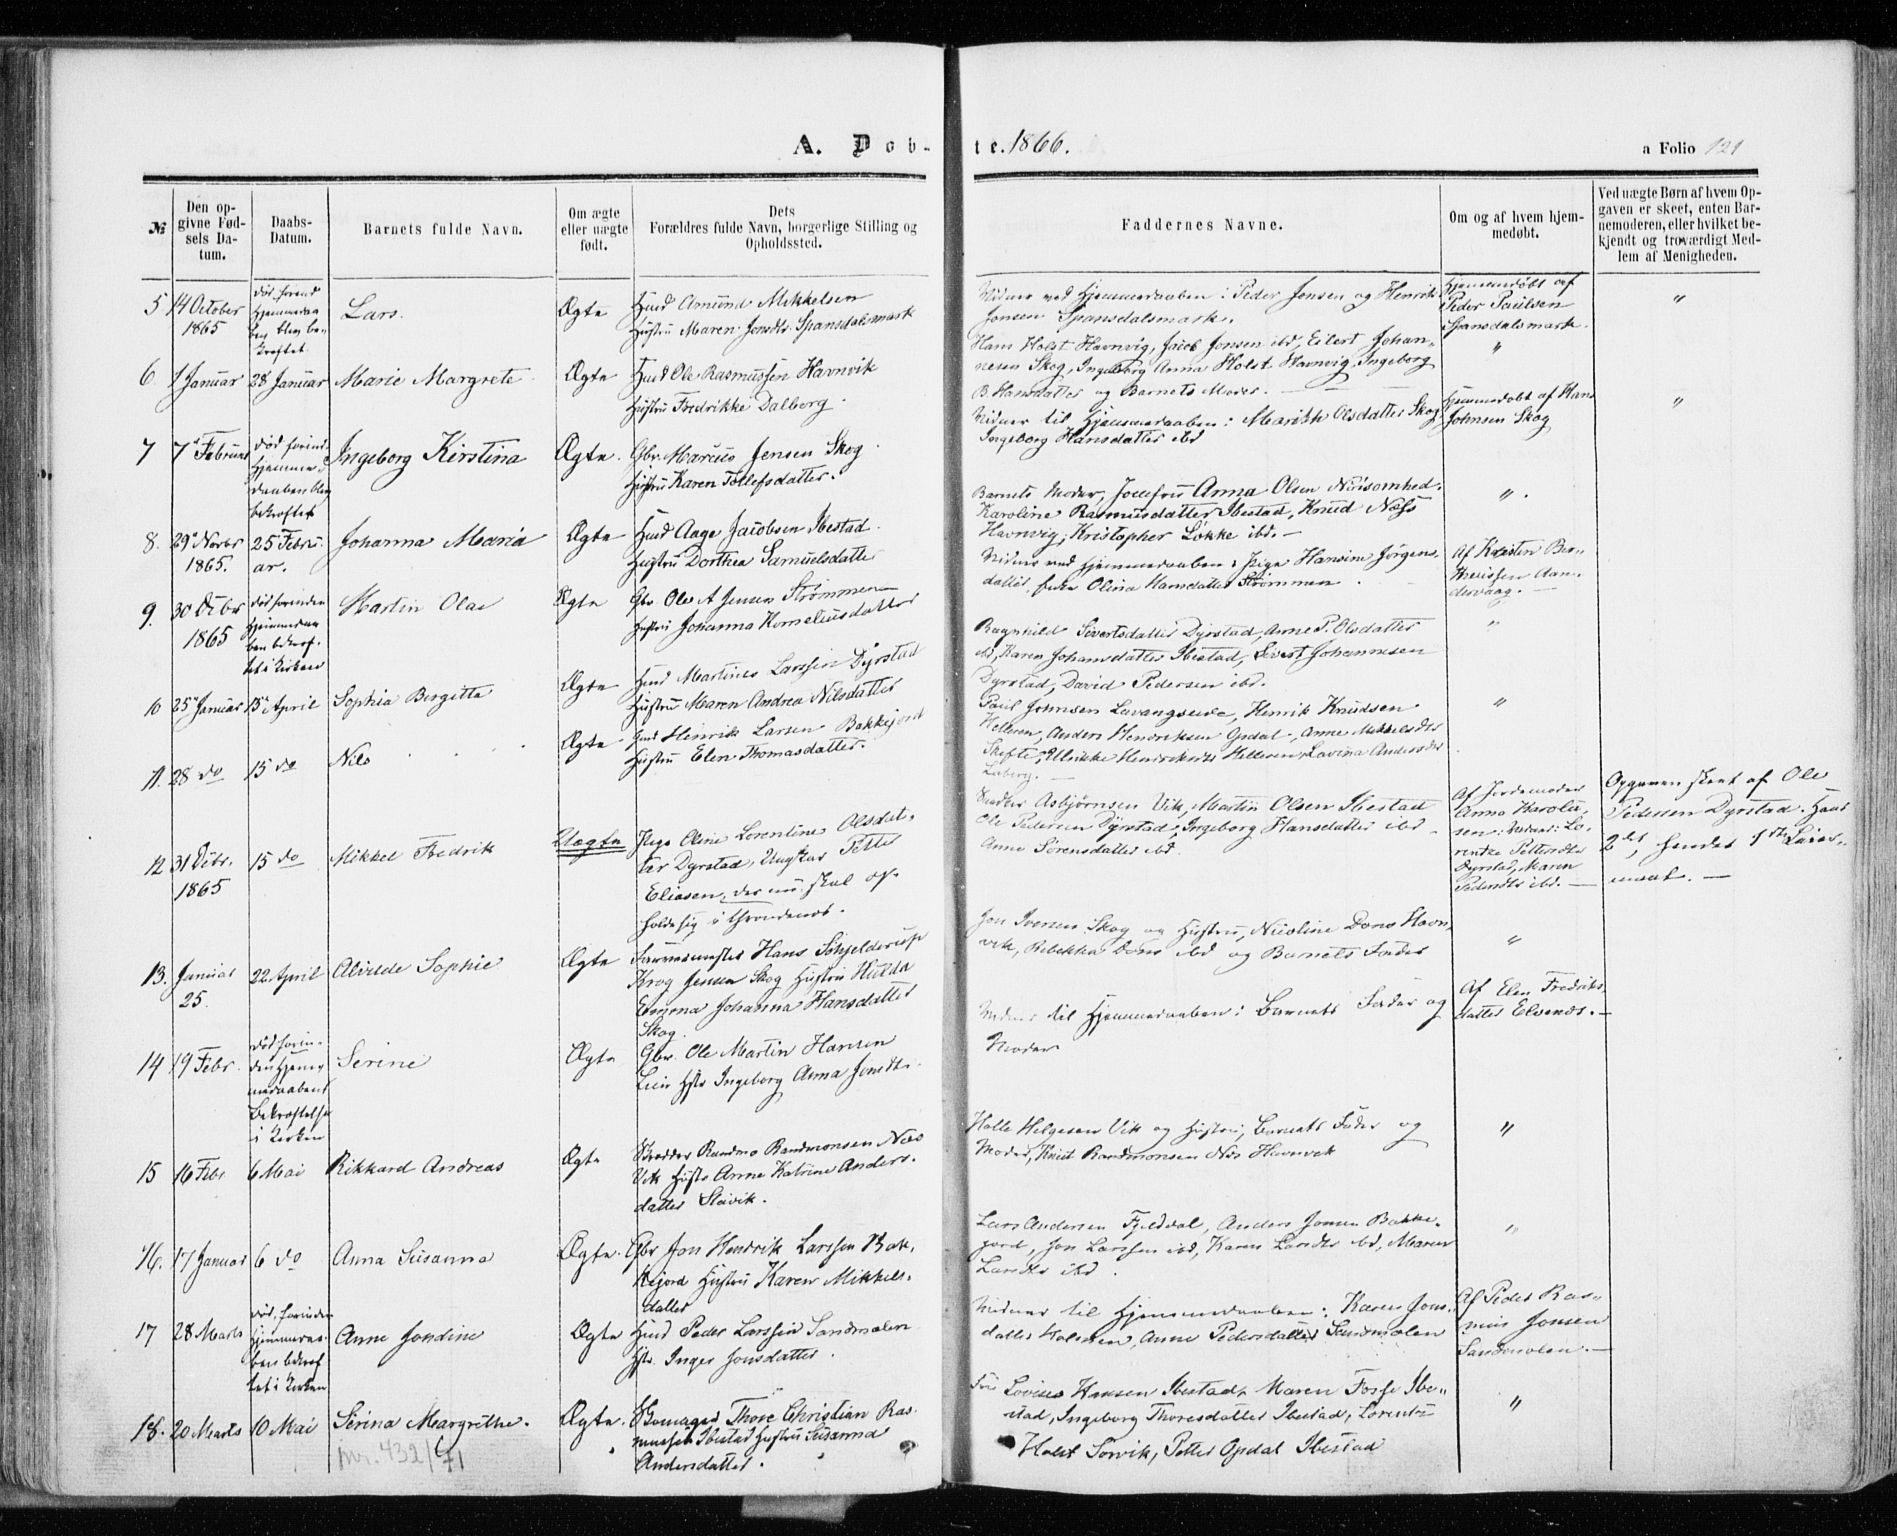 A. Døb-
te. 1866.
a Folio 121
№
Den op-
givne Fød-
sels Da-
tum.
Daabs-
Datum.
Barnets fulde Navn.
Om ægte
eller uægte
født.
Dets
Forældres fulde Navn, borgerlige Stilling og
Opholdssted.
Faddernes Navne.
Om og af hvem hjem-
medøbt.
Ved uægte Børn af hvem Op-
gaven er skeet, enten Bar-
nemoderen, eller hvilket be-
kjendt og troværdigt Med-
lem af Menigheden.
5
14 October
1865
død forend
Hjemmedaa
ben blev be-
kræftet.
Lars.
Ægte
Hmd Amund Mikkelsen
Hustru Maren Jonsdtr Spansdalsmark
Vidner ved Hjemmedaaben: Peder Jonsen og Henrik
Jonsen Spansdalsmark.
Hjemmedøbt af
Peder Paulsen
Spansdalsmark.
"
6.
1 Januar
28 Januar
Marie Margrete
Ægte
Hmd Ole Rasmussen Havnvik
Hustru Fredrikke Dalberg.
Hans Holst Havnvig, Jacob Jensen ibd, Eilert Johan-
nesen Skog, Ingeborg Anna Holst Havnvig, Ingeborg
B. Hansdatter og Barnets Moder.
"
7
7de Februar
død forind
Hjemme
daaben blev
bekræftet
Ingeborg Kirstina
Ægte.
Gbr. Marcus Jensen Skog
Hustru Karen Tollefsdatter.
Vidner til Hjemmedaaben: Marith Olsdatter Skog
Ingeborg Hansdatter ibd
Hjemmedøbt af Hans
Johnsen Skog
"
8.
29de Novbr
1865.
25 Febru
ar.
Johanna Maria
Ægte
Hmd Aage Jacobsen Ibestad
Hustru Dorthea Samuelsdatter
Barnets Moder, Jomfru Anna Olsen Nøisomhed.
Karoline Rasmusdatter Ibestad, Knud Næss
Havnvig, Kristopher Løkke ibd. —
"
9.
30 Debr
1865
død forinden
Hjemmedaa
ben bekræf
tet i Kirken
Martin Olai
Ægte
Gbr. Ole A Jensen Strømmen
Hustru Johanna Korneliusdatter
Vidner ved Hjemmedaaben: Pige Hansine Jørgens
datter, Olina Hansdatter Strømmen
Af Kristen Ber-
theussen Aan-
dervaag. —
10
25de Januar
15de April
Sophia Birgitta
Ægte
Hmd Martinus Larssen Dyrstad
Hustru Maren Andrea Nilsdatter
Ragnhild Sivertsdatter Dyrstad, Anne P. Olsdatter
ibd, Karen Johansdatter Ibestad, Sivert Johannesen
Dyrstad, David Pedersen ibd.
"
11.
28 do
15 do
Nils
Ægte
Hmd Henrik Larsen Bakkejord
Hustru Elen Thomasdatter.
Paul Johnsen Lavangseide, Henrik Knudsen
Helleren, Anders Hendriksen Opdal, Anne Mikkelsdtr
Skifte, Ulrikke Henriksdtr Helleren, Lavina Andersdtr
Laberg. —
"
12
31 Debr.
1865
15 do
Mikkel Fredrik
Uægte
Pige Oline Lorentine Olsdat-
ter Dyrstad, Ungkar Petter
Eliasen, der nu skal op-
holde sig i Throndenes.
Asbjørnsen Vik, Martin Olsen Ibestad
Ole Pedersen Dyrstad, Ingeborg Hansdatter ibd
Anne Sørensdatter ibd.
Af Jordemoder
Anna Karoliu
sen. Vidner: Lo-
rentze Pettersdtr
Dyrstad, Maren
Pedersdtr ibd. —
Opgaven skeet af Ole
Pedersen Dyrstad. Hans
2det, hendes 1ste Leier-
maal. —
13.
Januar
25.
22 April
Alvilde Sophie
Ægte
Hans Schjelderup
Krog Jensen Skog Hustru Hulda
Emma Johanna Hansdatter
Skog.
Jon Iversen Skog og Hustru, Nicoline Dons Havn-
vik, Rebekka Dons ibd og Barnets Fader
"
14
19 Febr.
død forin-
den Hjem-
medaabens
Bekræftelse
i Kirken
Serine
Ægte
Gbr. Ole Martin Hansen
Leir Hstr Ingeborg Anna Jonsdtr.
Vidner til Hjemmedaaben: Barnets Fader og
Moder
Af Elen Fredriks-
datter Elvenes. —
15
16 Febr
6 Mai
Rikkard Andreas
Ægte
Skrædder Randmo Randmonsen Næs
Vik Hustr Anne Katrine Anders-
datter Slavik.
Halle Helgesen Vik og Hustru, Barnets Fader og
Moder, Knut Randmonsen Næs Havnvik
"
16.
17 Januar
6 do
Anna Susanna
Ægte.
Gbr Jon Hendrik Larssen Bak-
kejord Hustru Karen Mikkels-
datter
Lars Andersen Fjelddal, Anders Jonsen Bakke-
jord, Jon Larssen ibd, Karen Larsdtr ibd, Maren
Larsdtr ibd.
"
17
28 Marts
død forinden
Hjemmedaa-
ben bekræf
tet i Kirken
Anne Jondine
Ægte
Hmd Peder Larssen Sandmolen
Hstr. Inger Jonsdatter.
Vidner til Hjemmedaaben: Karen Jons-
datter Holmen, Anne Pedersdatter Sandmolen
Af Peder Ras-
mus Jonsen
Sandmolen. —
18.
20 Marts
10 Mai
Serina Margrethe.
Ægte.
Thore Christian Ras-
mussen Ibestad Hustru Susanna
Andersdatter.
Lovise Hansen Ibestad, Maren Fosse Ibe-
stad, Ingeborg Thoresdatter Ibestad, Lorents
Holst Sørvik, Petter Opdal Ibestad
"
nr. 432/71